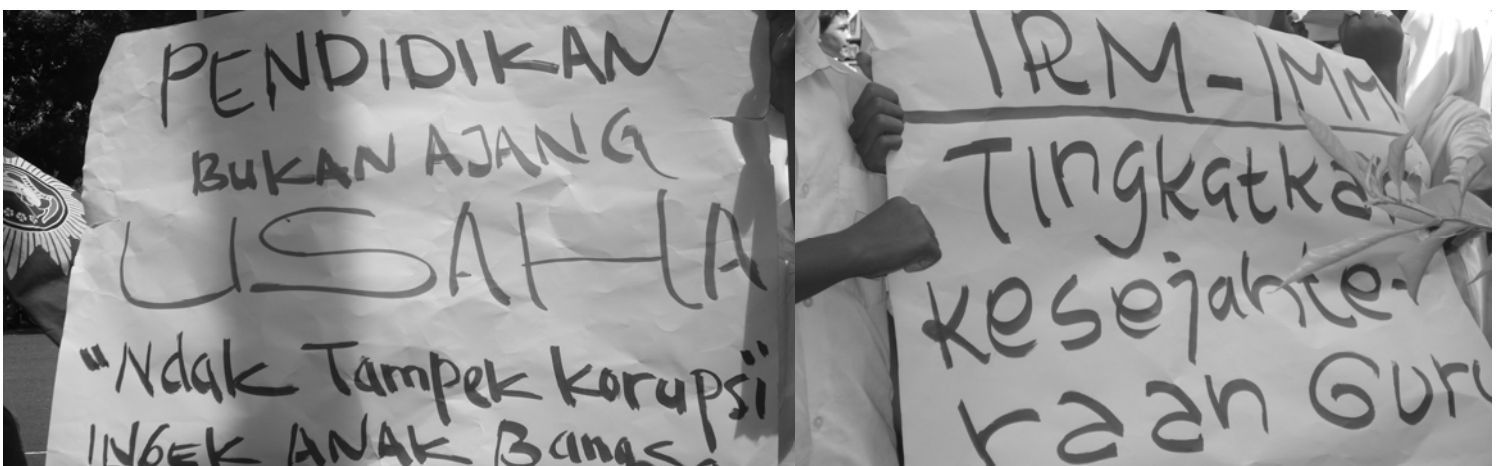 PENDIDIKAN
BUKAN AJANG
USAHA
"Ndak Tampek korupsi"
INGEK ANAK Bangs
IRM-IMM
Tingkatka
kesejahte-
raan Guru